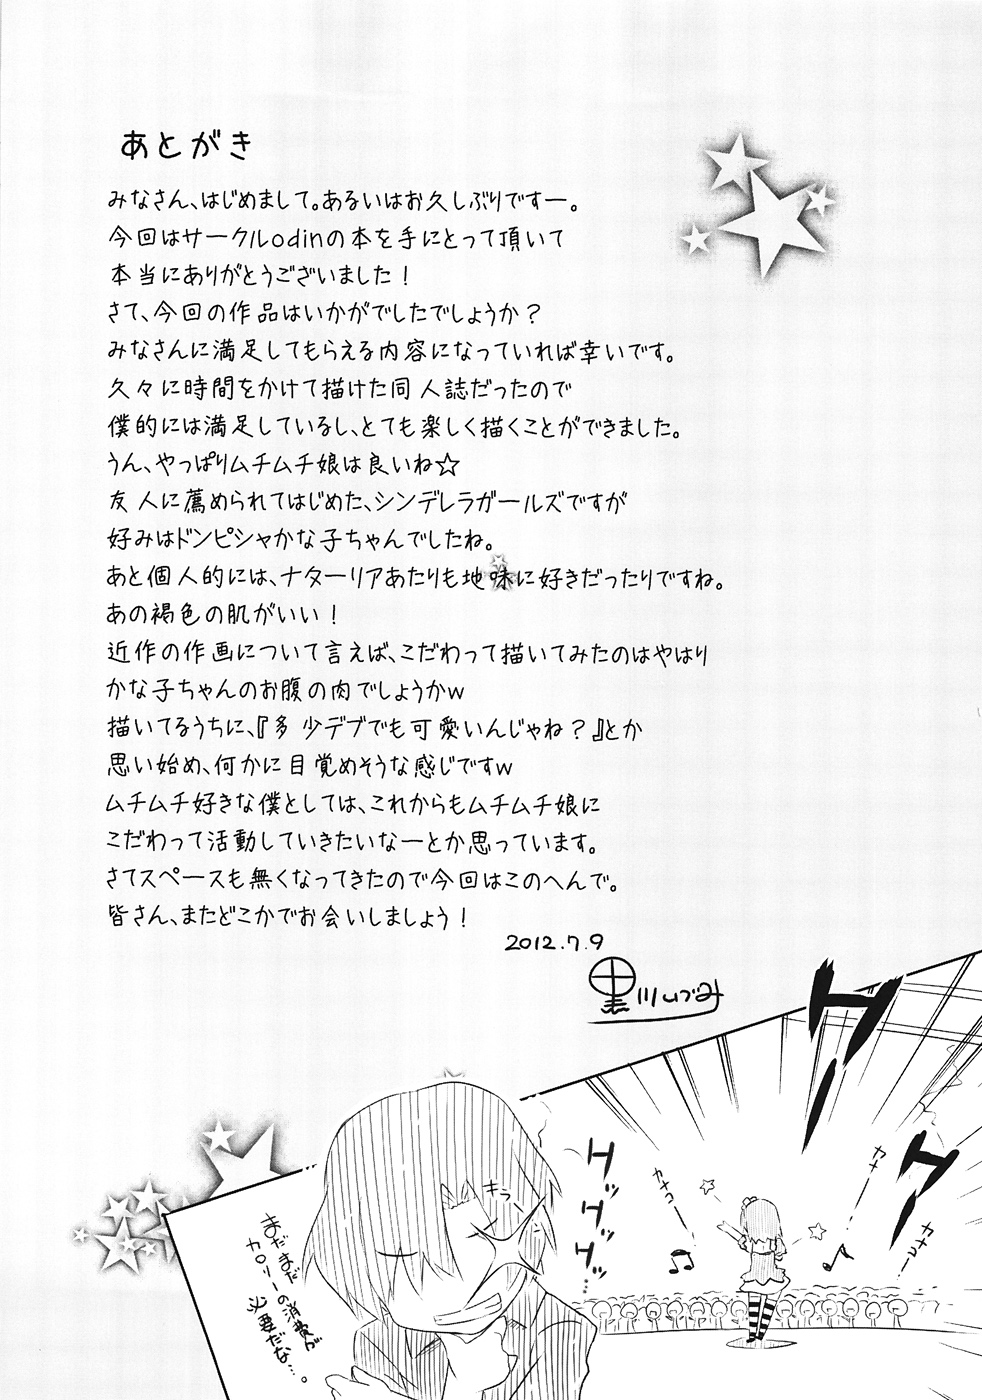 あとがき
みなさん、はじめまして。あるいはお久しぶりですー。
今回はサークルodinの本を手にとって頂いて
本当にありがとうございました！
さて、今回の作品はいかがでしたでしょうか？
みなさんに満足してもらえる内容になっていれば幸いです。
久々に時間をかけて描けた同人誌だったので
僕的には満足しているし、とても楽しく描くことができました。
うん、やっぱりムチムチ娘は良いね☆
友人に薦められてはじめた、シンデレラガールズですが
好みはドンピシャかな子ちゃんでしたね。
あと個人的には、ナターリアあたりも地味に好きだったりですね。
あの褐色の肌がいい！
近作の作画について言えば、こだわって描いてみたのはやはり
かな子ちゃんのお腹の肉でしょうかw
描いてるうちに、『多少デブでも可愛いんじゃね？』とか
思い始め、何かに目覚めそうな感じですw
ムチムチ好きな僕としては、これからもムチムチ娘に
こだわって活動していきたいなーとか思っています。
さてスペースも無くなってきたので今回はこのへんで。
皆さん、またどこかでお会いしましょう！
2012.7.9
黒川いづみ
カナ
カナコー
カナコー
キラーン
まだまだ
カロリーの消費が
必要だな…。